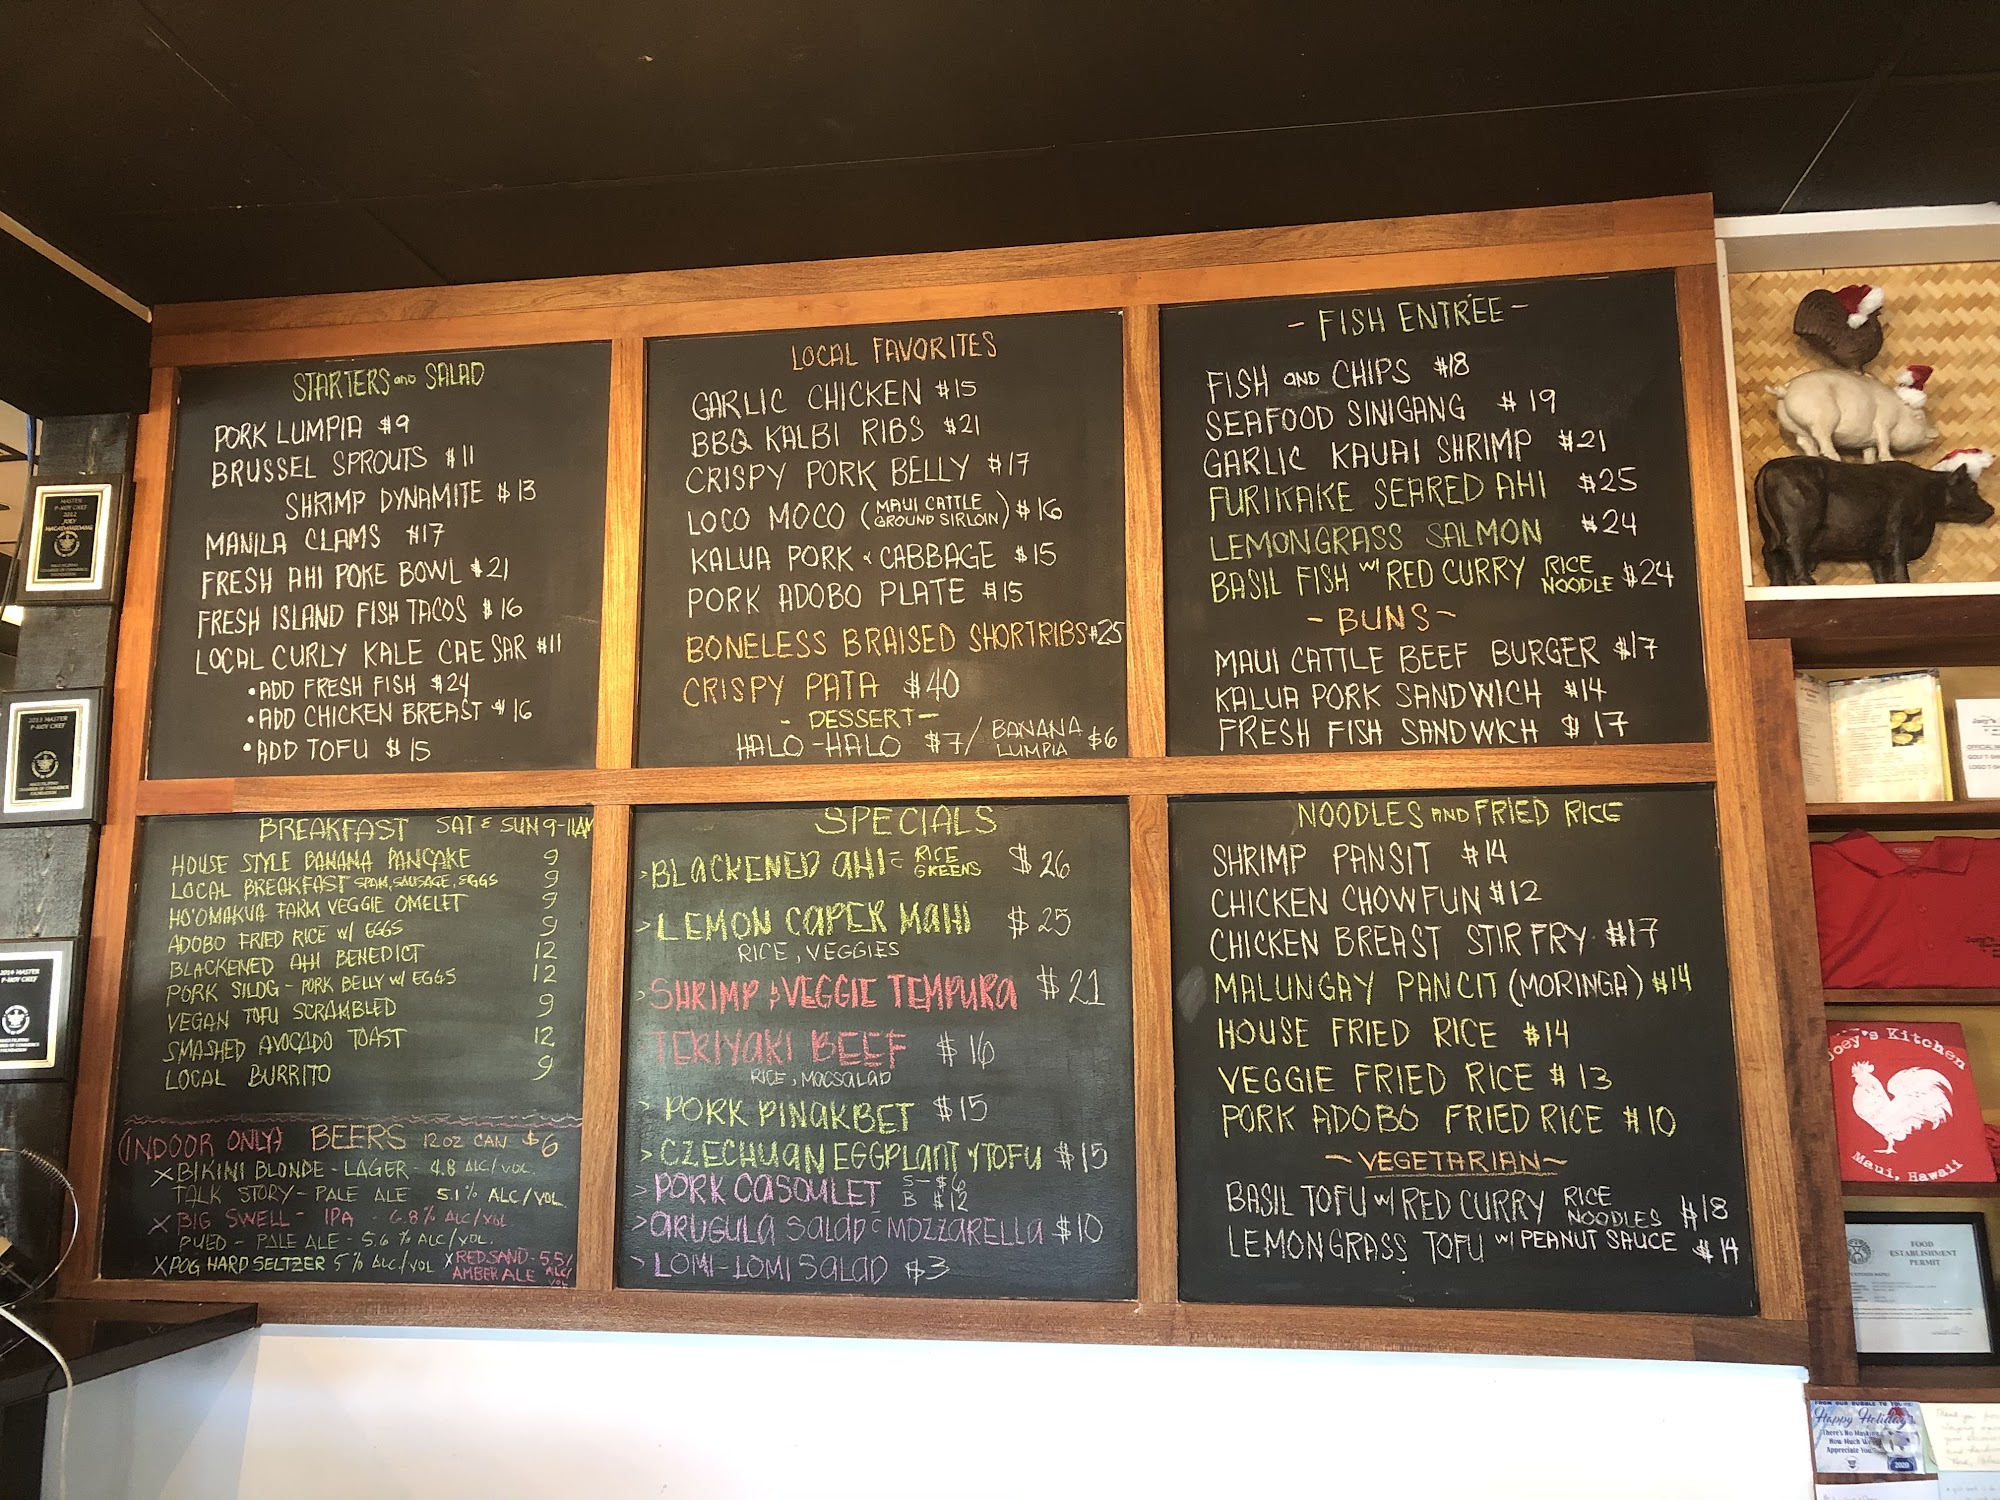 STARTERS AND SALAD
PORK LUMPIA $9
BRUSSEL SPROUTS $11
SHRIMP DYNAMITE $13
MANILA CLAMS $17
FRESH AHI POKE BOWL $21
FRESH ISLAND FISH TACOS $16
LOCAL CURLY KALE CAESAR $11
• ADD FRESH FISH $24
• ADD CHICKEN BREAST $16
• ADD TOFU $15
LOCAL FAVORITES
GARLIC CHICKEN $15
BBQ KALBI RIBS $21
CRISPY PORK BELLY $17
LOCO MOCO (MAUI CATTLE GROUND SIRLOIN) $16
KALUA PORK & CABBAGE $15
PORK ADOBO PLATE $15
BONELESS BRAISED SHORTRIBS $25
CRISPY PATA $40
- DESSERT -
HALO-HALO $7 / BANANA LUMPIA $6
- FISH ENTRÉE -
FISH AND CHIPS $18
SEAFOOD SINIGANG $19
GARLIC KAUAI SHRIMP $21
FURIKAKE SEARED AHI $25
LEMONGRASS SALMON $24
BASIL FISH W/ RED CURRY RICE NOODLE $24
- BUNS -
MAUI CATTLE BEEF BURGER $17
KALUA PORK SANDWICH $14
FRESH FISH SANDWICH $17
BREAKFAST SAT & SUN 9-11AM
HOUSE STYLE BANANA PANCAKE 9
LOCAL BREAKFAST SPAM, SAUSAGE, EGGS 9
HO'OMAKUA FARM VEGGIE OMELET 9
ADOBO FRIED RICE W/ EGGS 9
BLACKENED AHI BENEDICT 12
PORK SILOG - PORK BELLY W/ EGGS 12
VEGAN TOFU SCRAMBLED 9
SMASHED AVOCADO TOAST 12
LOCAL BURRITO 9
(INDOOR ONLY) BEERS 12 OZ CAN $6
X BIKINI BLONDE - LAGER - 4.8 ALC/VOL.
TALK STORY - PALE ALE 5.1% ALC/VOL
X BIG SWELL - IPA - 6.8% ALC/VOL
PUEO - PALE ALE - 5.6 % ALC/VOL.
X POG HARD SELTZER 5% ALC/VOL X RED SAND - 5.5/ AMBER ALE ALC/VOL
SPECIALS
> BLACKENED AHI = RICE GREENS $26
> LEMON CAPER MAHI $25
RICE, VEGGIES
> SHRIMP & VEGGIE TEMPURA $21
TERIYAKI BEEF $16
RICE, MACSALAD
> PORK PINAKBET $15
> CZECHUAN EGGPLANT Y TOFU $15
> PORK CASOULET S - $6 B $12
> ARUGULA SALAD C MOZZARELLA $10
> LOMI-LOMI SALAD $3
NOODLES AND FRIED RICE
SHRIMP PANSIT $14
CHICKEN CHOWFUN $12
CHICKEN BREAST STIR FRY $17
MALUNGAY PANCIT (MORINGA) $14
HOUSE FRIED RICE $14
VEGGIE FRIED RICE $13
PORK ADOBO FRIED RICE $10
~ VEGETARIAN ~
BASIL TOFU W/ RED CURRY RICE NOODLES $18
LEMONGRASS TOFU W/ PEANUT SAUCE $14
MASTER
P-NOY CHEF
2012
2013 MASTER
P-NOY CHEF
2019 MASTER
P-NOY CHEF
Joey's Kitchen
Maui, Hawaii
FOOD
ESTABLISHMENT
PERMIT
Happy Holidays
There's No Mask
How Much We
Appreciate You
2020